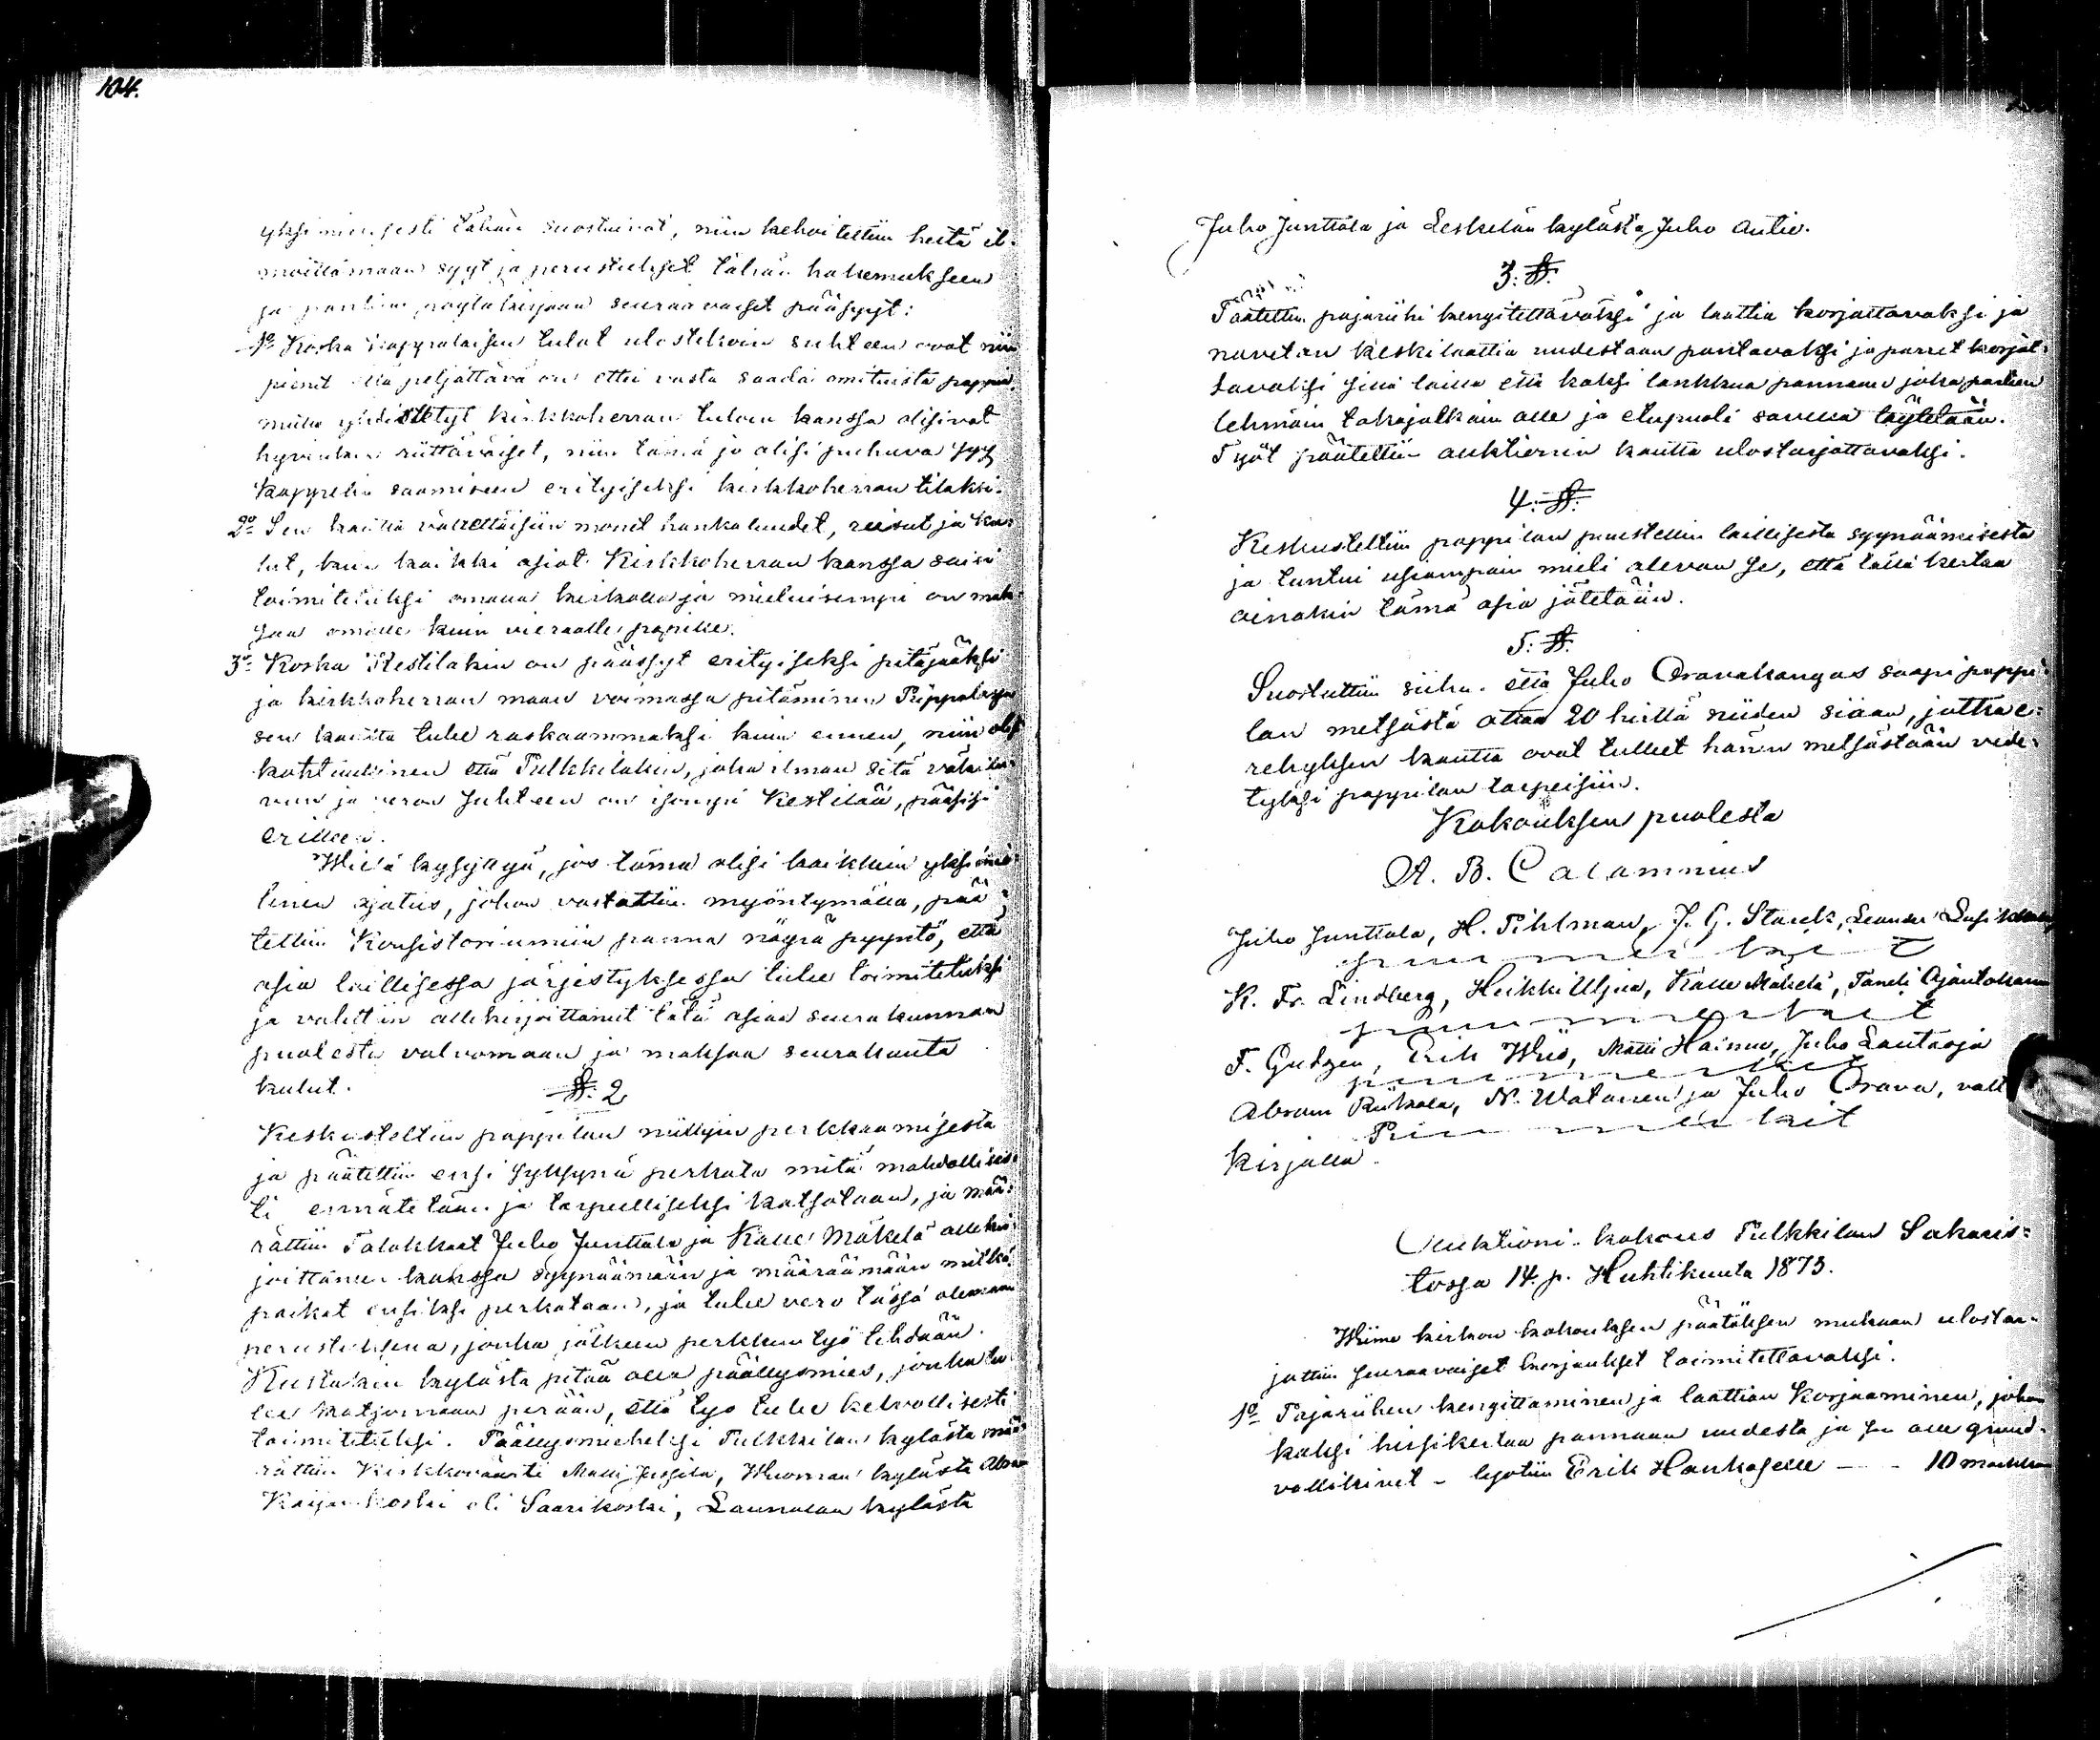 104.
yksimielisesti tähän suostuivat, niin kehoitettiin heitä il-
moittamaan syyt ja perustukset tähän hakemukseen
ja pantiin pöytäkirjaan seuraavaiset pääsyyt:
1o Koska kappalaisen tulot ulostekoin suhteen ovat niin
pienet että peljättävä on ettei vasta saada omituista pappia,
mutta yhdistetyt kirkkoherran tuloin kanssa olisivat
hyvinkin riittäväiset, niin tämä jo olisi puhuva syy
kappelin saamiseen erityiseksi kirkkoherran tilaksi.
2o Sen kautta vältettäisiin monet hankaluudet, reisut ja ku-
lut, kun kaikki asiat Kirkkoherran kanssa saisi
toimitetuksi omana kirkolla ja mieluisempi on mak-
saa omille kuin vieraalle papille.
3o Koska Kestiläkin on päässyt erityiseksi pitäjääksi
ja kirkkoherran maan voimassa pitäminen Piippolassa
sen kautta tulee raskaammaksi kuin ennen, niin olisi
kohtuullinen että Pulkkilakin, joka ilman sitä väkilu-
vun ja veron suhteen on isompi Kestilää, pääsisi
erilleen.
Wielä kysyttyä, jos tämä olisi kaikkein yksimie-
linen ajatus, johon vastattiin myöntymällä, pää-
tettiin Konsistoriumiin panna nöyrä pyyntö, että
asia laillisessa järjestyksessä tulee toimitetuksi
ja valittiin allekirjoittanut tätä asiaa seurakunnan
puolesta valvomaan ja maksaa seurakunta
kulut.
§. 2
Keskusteltiin pappilan niittyin perkkaamisesta
ja päätettiin ensi syksynä perkata mitä mahdollises-
ti ennätetään ja tarpeelliseksi katsotaan, ja mää-
rättiin Talokkaat Juho Junttola ja Kalle Mäkelä allekir-
joittaneen kanssa syynäämään ja määräämään mitkä
paikat ensiksi perkataan, ja tulee vero tässä olemaan
perustuksena, jonka jälkeen perkkuu työ tehdään.
Kustakin kylästä pitää olla päällysmies, jonka tu-
lee katsomaan perään, että työ tulee kelvollisesti
toimitetuksi. Päällysmieheksi Pulkkilan kylästä mää-
rättiin Kirkkoväärti Matti Jussila, Wuornan kylästä
Koski eli Saarikoski, Laurnalan kylästä
Juho Junttola ja Leskelän kylästä Juho Autio.
3. §.
Päätettiin pajariihi kengitettäväksi ja laattia korjattavaksi ja
navetan keskilaattia uudestaan pantavaksi ja parret korjat-
tavaksi sillä lailla että kaksi lankkua pannaan joka parteen
lehmäin takajalkain alle ja etupuoli savella täytetään.
Työt päätettiin auktionin kautta ulostarjottavaksi.
4. §.
Keskusteltiin pappilan puustellin laillisesta syynäämisestä
ja tuntui useampain mieli olevan se, että tällä kertaa
ainakin tämä asia jätetään.
5. §.
Suostuttiin siihen että Juho Oravakangas saapi pappi-
lan metsästä ottaa 20 hirttä niiden siaan, jotka e-
rehyksen kautta ovat tulleet hänen metsästään vede-
tyksi pappilan tarpeisiin.
Kokouksen puolesta
A. B. Calamnius
Juho Junttola, H. Pihlman, J. G. Starck, Leander
puumerkit
K. Fr. Lindberg, Heikki Uljua, Kalle Mäkelä, Taneli
puumerkit
F. Gutzen, Erik Wiio, Matti Haimu, Juho Lautaoja
puumerkit
Abram Riikola, N. Watanen ja Juho Orava,
Puumerkit
Kirjalla.
Auktioni-kokous Pulkkilan Sakaris-
tossa 14. p. Huhtikuuta 1873.
Wiime kirkon kokouksen päätöksen mukaan ulostar-
jottiin seuraavaiset korjaukset toimitettavaksi.
1o Pajariihen kengittäminen ja laattian korjaaminen, johon
kaksi hirsikertaa pannaan uudesta ja sen alle grund-
vallikivet – lyötiin Erik Honkaselle – – 10 markkaa